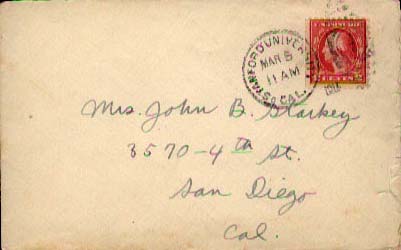 STANFORD UNIVER
MAR 5
11 AM
CAL.
CENTS
Mrs. John B. Starkey
3570-4th St.
San Diego
Cal.